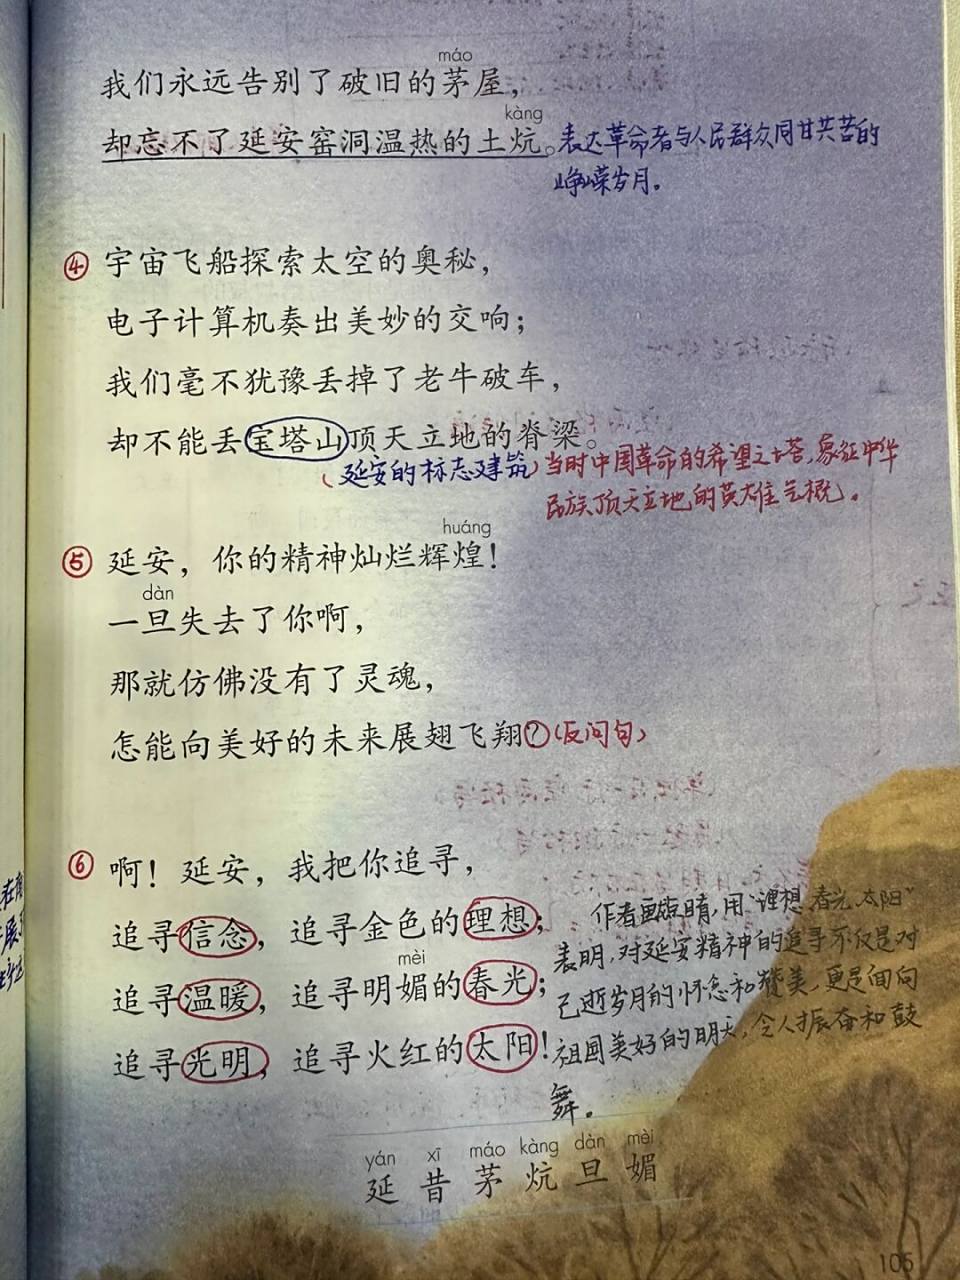 máo
我们永远告别了破旧的茅屋，
kàng
却忘不了延安窑洞温热的土炕。表达革命者与人民群众同甘共苦的
峥嵘岁月。
④ 宇宙飞船探索太空的奥秘，
电子计算机奏出美妙的交响；
我们毫不犹豫丢掉了老牛破车，
却不能丢宝塔山顶天立地的脊梁。
（延安的标志建筑）当时中国革命的希望之塔，象征中华
民族顶天立地的英雄气概。
huáng
⑤ 延安，你的精神灿烂辉煌！
dàn
一旦失去了你啊，
那就仿佛没有了灵魂，
怎能向美好的未来展翅飞翔？（反问句）
⑥ 啊！延安，我把你追寻，
追寻信念，追寻金色的理想；
作者画龙点睛，用“理想 春光 太阳”
表明，对延安精神的追寻不仅是对
mèi
追寻温暖，追寻明媚的春光；
已逝岁月的怀念和赞美，更是面向
追寻光明，追寻火红的太阳！
祖国美好的明天，令人振奋和鼓
舞。
yán xī máo kàng dàn mèi
延 昔 茅 炕 旦 媚
105